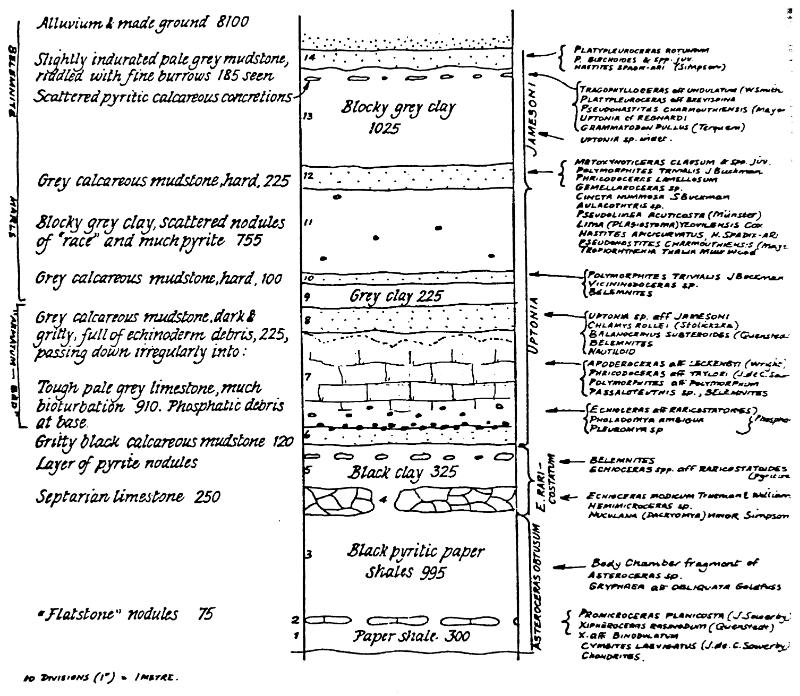 Alluvium & made ground 8100
Slightly indurated pale grey mudstone,
riddled with fine burrows 185 seen
Scattered pyritic calcareous concretions
Grey calcareous mudstone, hard, 225
Blocky grey clay, scattered nodules
of "race" and much pyrite 755
Grey calcareous mudstone, hard, 100
Grey calcareous mudstone, dark &
gritty, full of echinoderm debris, 225,
passing down irregularly into:
Tough pale grey limestone, much
bioturbation 910. Phosphatic debris
at base.
Gritty black calcareous mudstone 120
Layer of pyrite nodules
Septarian limestone 250
"Flatstone" nodules 75
10 DIVISIONS (1") = 1 METRE.
BELEMNITE
MARLS
"ARMATUM-BED"
14
13
Blocky grey clay
1025
12
11
10
9
Grey clay 225
8
7
6
5
Black clay 325
4
3
Black pyritic paper
shales 995
2
1
Paper shale. 300
JAMESONI
UPTONIA
E. RARI-
COSTATUM
ASTEROCERAS OBTUSUM
PLATYPLEUROCERAS ROTUNDUM
P. & spp. juv.
HASTITES (Simpson)
TRAGOPHYLLOCERAS aff UNDULATUM (W Smith
PLATYPLEUROCERAS aff BREVISPINA
PSEUDOHASTITES CHARMOUTHENSIS (Mayer
UPTONIA cf REGNARDI
GRAMMATODON PULLUS (Terquem)
UPTONIA sp. indet.
METOXYNOTICERAS & spp. juv.
POLYMORPHITES TRIVIALIS J Buckman
PHRICODOCERAS LAMELLOSUM
GEMELLAROCERAS sp.
CINCTA NUMMOSA S Buckman
AULACOTHYRIS sp.
PSEUDOLIMEA ACUTICOSTA (Münster)
LIMA (PLAGIOSTOMA) COX
HASTITES H. SPADIX-ARI
PSEUDOHASTITES CHARMOUTHENSIS (Maye
THALIA
POLYMORPHITES TRIVIALIS J Buckman
VICININODOCERAS sp.
BELEMNITES
UPTONIA sp. aff JAMESONI
CHLAMYS ROLLEI (Stoliczka)
BALANOCRINUS SUBTEROIDES (Quenstedt
BELEMNITES
NAUTILOID
APODEROCERAS aff LECKENBYI (Wright)
PHRICODOCERAS aff TAYLORI (J de C Sow
POLYMORPHITES aff POLYMORPHUM
PASSALOTEUTHIS sp., BELEMNITES
ECHIOCERAS aff RARICOSTATOIDES
PHOLADOMYA AMBIGUA
PLEUROMYA sp
Phospha
BELEMNITES
ECHIOCERAS spp. aff RARICOSTATOIDES
ECHIOCERAS MODICUM Trueman & William
HEMIMICROCERAS sp.
NUCULANA (DACRYOMYA) MINOR Simpson
Body Chamber fragment of
ASTEROCERAS sp.
GRYPHAEA aff OBLIQUATA GOLDFUSS
PROMICROCERAS PLANICOSTA (J. Sowerby)
XIPHEROCERAS RASINODUM (Quenstedt)
X. aff BINODULATUM
CYMBITES LAEVIGATUS (J. de. C. Sowerby)
CHONDRITES.